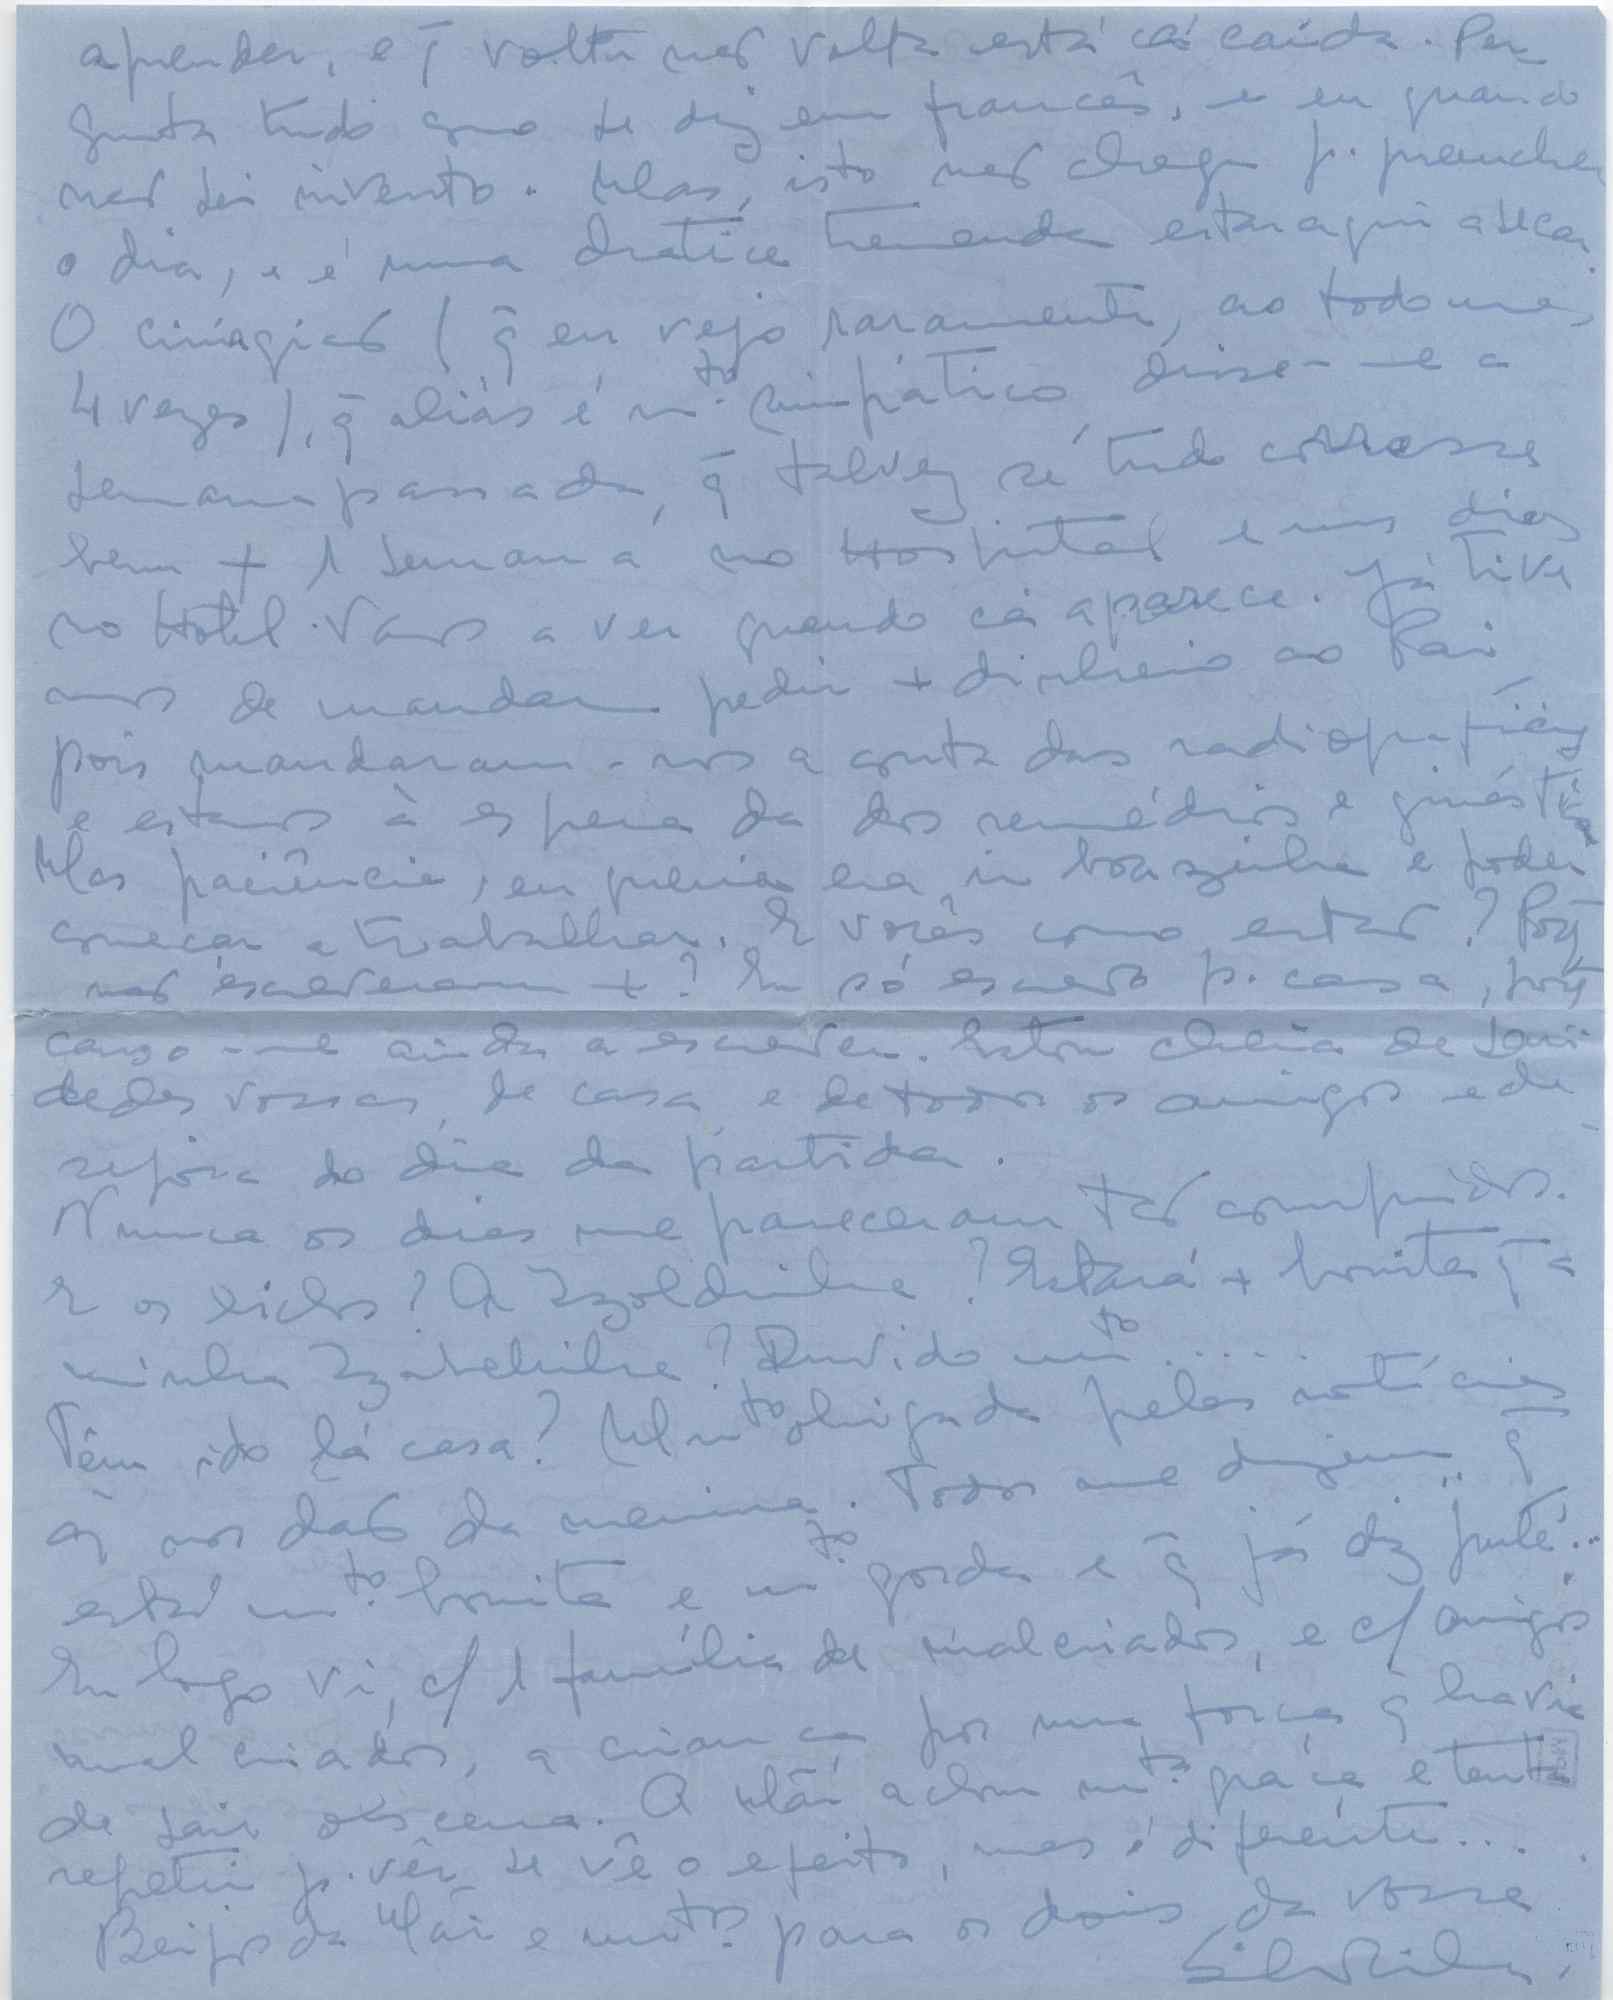 aprender, e q̄ volta não volta está cá caída. Per
gunta tudo como se diz em francês, e eu quando
não sei invento. Mas, isto não chega p. preencher
o dia, e é uma chatice tremenda estar aqui a secar.
O cirurgião (q̄ eu vejo raramente, ao todo umas
4 vezes), q̄ aliás é m.to simpático disse-me a
semana passada, q̄ talvez se tudo corresse
bem + 1 semana no Hospital e uns dias
no Hotel. Vamos a ver quando cá aparece. Já tive
mos de mandar pedir + dinheiro ao Pai
pois mandaram-nos a conta das radiografias
e estamos à espera da dos remédios e ginástica
Mas paciência, eu queria era ir boazinha e poder
começar a trabalhar. E vocês como estão? Porq̄
não escreveram +? Eu só escrevo p. casa, porq̄
canso-me ainda a escrever. Estou cheia de sau
dades vossas, de casa e de todos os amigos e de
do dia da partida.
Nunca os dias me pareceram tão compridos.
E os bichos? A Izoldinha? Estará + bonita q̄ a
minha Izabelinha? Duvido m.to.....
Têm ido lá casa? M.to obrigada pelas notícias
q̄ nos dão da menina. Todos me dizem q̄
está m.to bonita e m.to gorda e q̄ já diz "puté"...
Eu logo vi, c/ 1 família de malcriados, e c/ amigos
mal criados, a criança por uma força q̄ havia
de sair obscena. A Mãi achou m.ta graça e tenta
repetir p. vêr se vê o efeito, mas é diferente...
Beijos da Mãi e m.tos para os dois da vossa